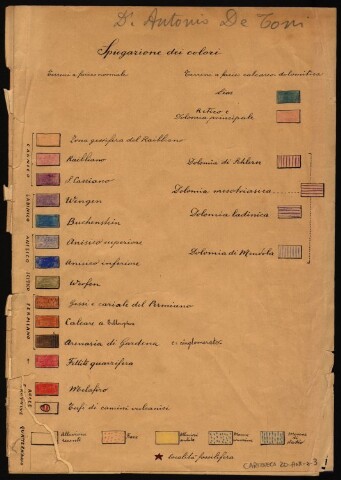 Dr Antonio De Toni
Spiegazione dei colori
Terreni a facies normale
Terreni a facies calcareo dolomitica
Lias
Retico e
Dolomia principale
Zona gessifera del Raibliano
Raibliano
S. Cassiano
Wengen
Buchenstein
Anisico superiore
Anisico inferiore
Werfen
Gessi e cariale del Permiano
Calcare a Bellerophon
Arenaria di Gardena e conglomerato
Fillite quarzifera
Melafiro
Tufi di camini vulcanici
Dolomia di Schlern
Dolomia mesotriasica
Dolomia ladinica
Dolomia di Mendola
CARNICO
LADINICO
ANISICO
SCITICO
PERMIANO
QUATERNARIO
Alluvioni
recenti
Frane
Alluvioni
antiche
Morene
Morene
località fossilifera